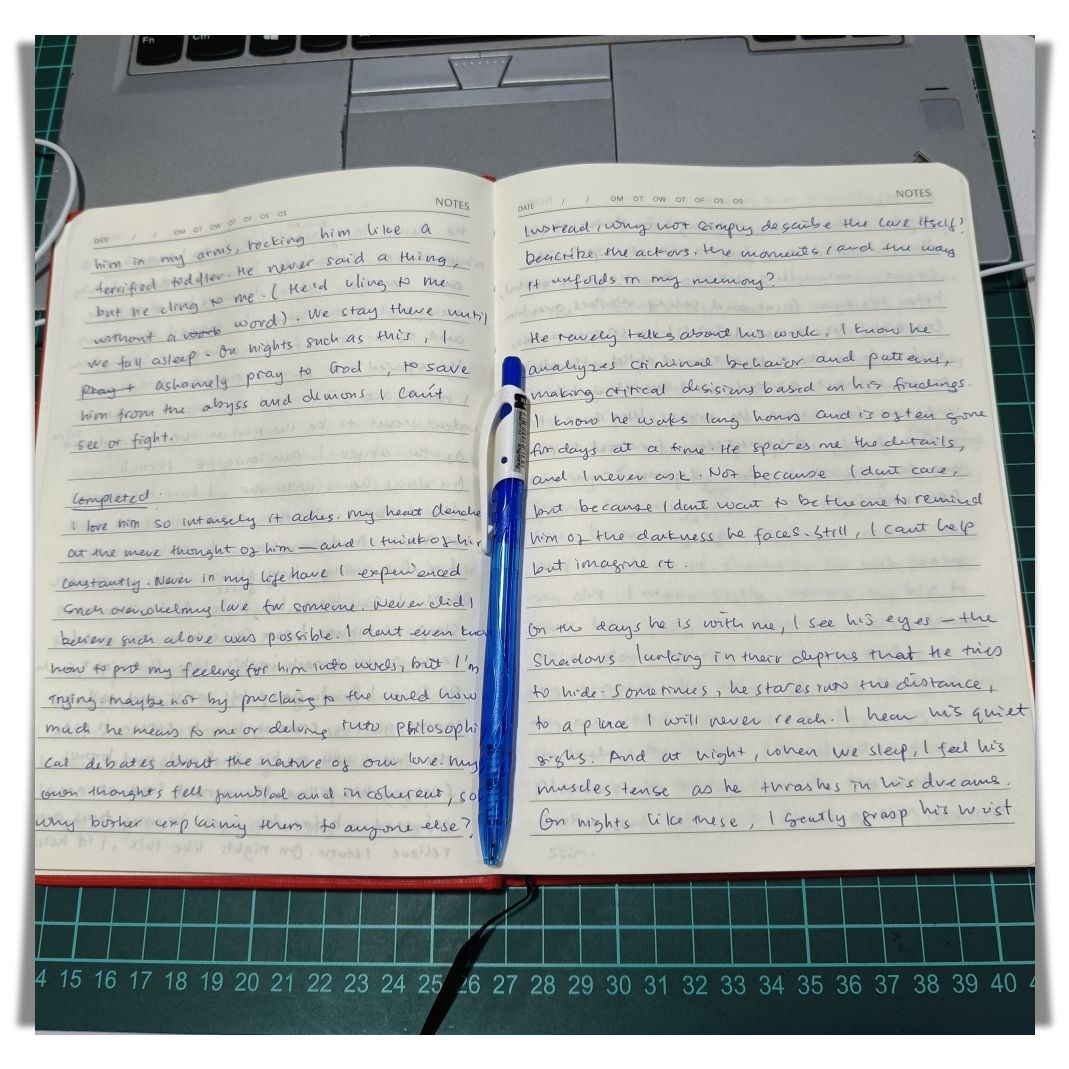 Fn
Ctrl
DATE / / OM OT OW OT OF OS OS NOTES
him in my arms, rocking him like a
terrified toddler. He never said a thing,
but he cling to me. (He'd cling to me
without a word). We stay there until
we fall asleep. On nights such as this, I
Pray ashamely pray to God, to save
him from the abyss and demons I can't
see or fight.
Completed.
I love him so intensely it aches. My heart clenche
at the mere thought of him — and I think of him
constantly. Never in my life have I experienced
such overwhelmy love for someone. Never did I
believe such a love was possible. I don't even kno
how to put my feelings for him into words, but I'm
trying. maybe not by proclaing to the world how
much he means to me or delving into philosophi
cal debates about the nature of our love. My
own thoughts fell jumbled and incoherent, so
why bother explaining them to anyone else?
DATE / / OM OT OW OT OF OS OS NOTES
Instead, why not simply describe the love itself?
Describe the actors, the moments, and the way
it unfolds in my memory?
He rarely talks about his work. I know he
analyzes criminal behavior and patterns,
making critical desisions based on his findings.
I know he works long hours and is often gone
for days at a time. He spares me the details,
and I never ask. Not because I don't care,
but because I don't want to be the one to remind
him of the darkness he faces. Still, I can't help
but imagine it.
On the days he is with me, I see his eyes — the
shadows lurking in their depths that he tries
to hide. Sometimes, he stares into the distance,
to a place I will never reach. I hear his quiet
sighs. And at night, when we sleep, I feel his
muscles tense as he thrashes in his dreams.
On nights like these, I gently grasp his wrist
4 15 16 17 18 19 20 21 22 23 24 25 26 27 28 29 30 31 32 33 34 35 36 37 38 39 40 4